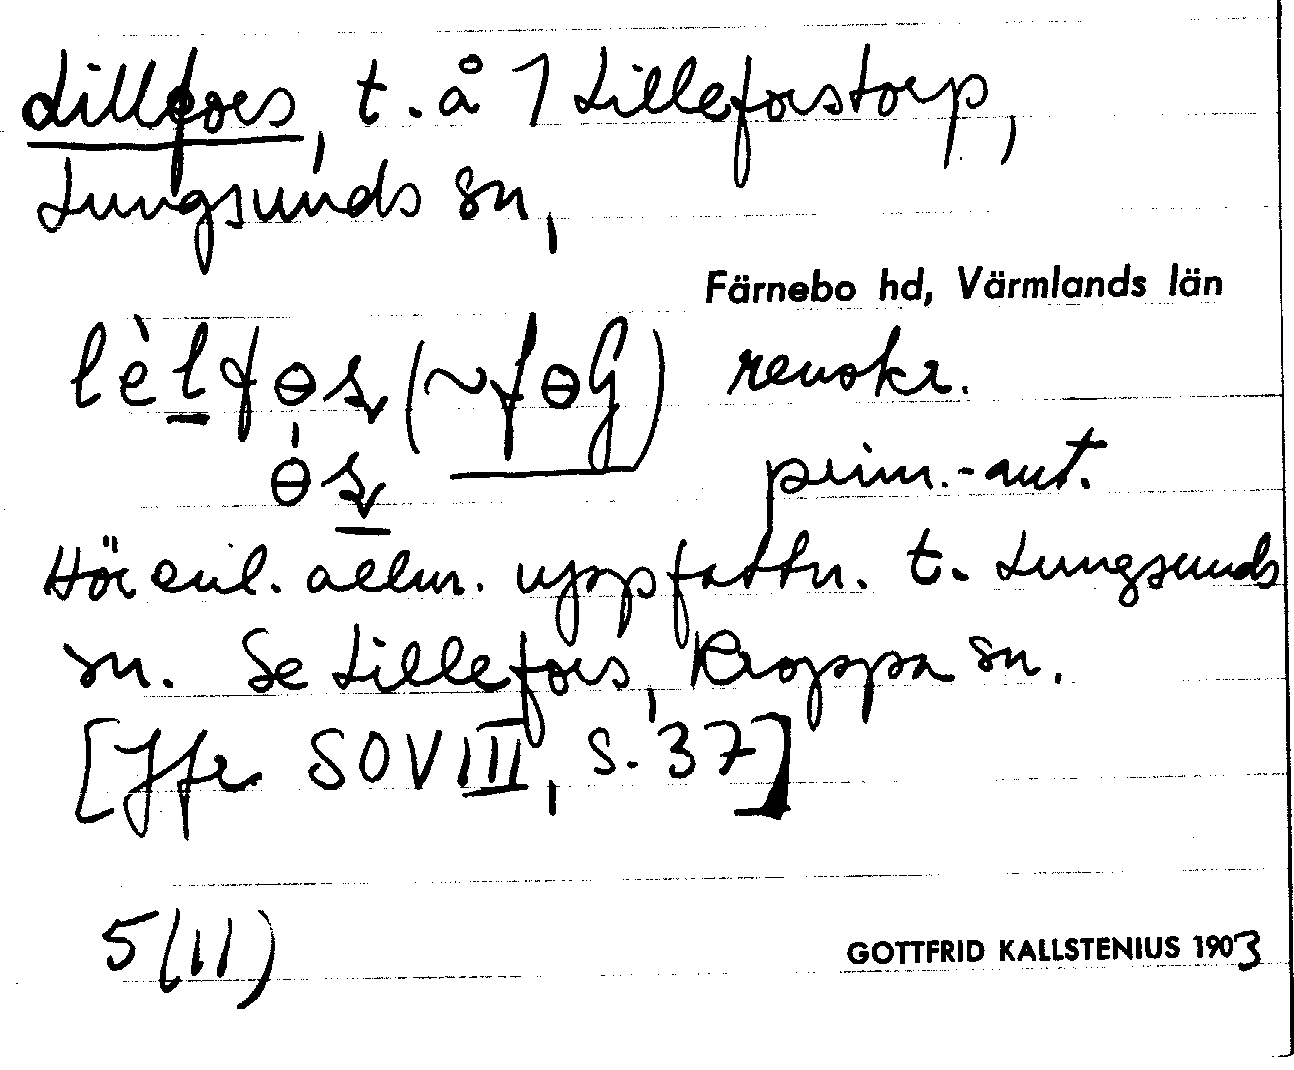 Lillfors, t. å 1 Lilleforstorp,
Lungsunds sn,
Färnebo hd, Värmlands län
renskr.
prim.-ant.
Hör enl. allm. uppfattn. t. Lungsunds
sn. Se Lillefors, Kroppa sn.
[Jfr SOV III, s. 37]
5(11)
GOTTFRID KALLSTENIUS 1903